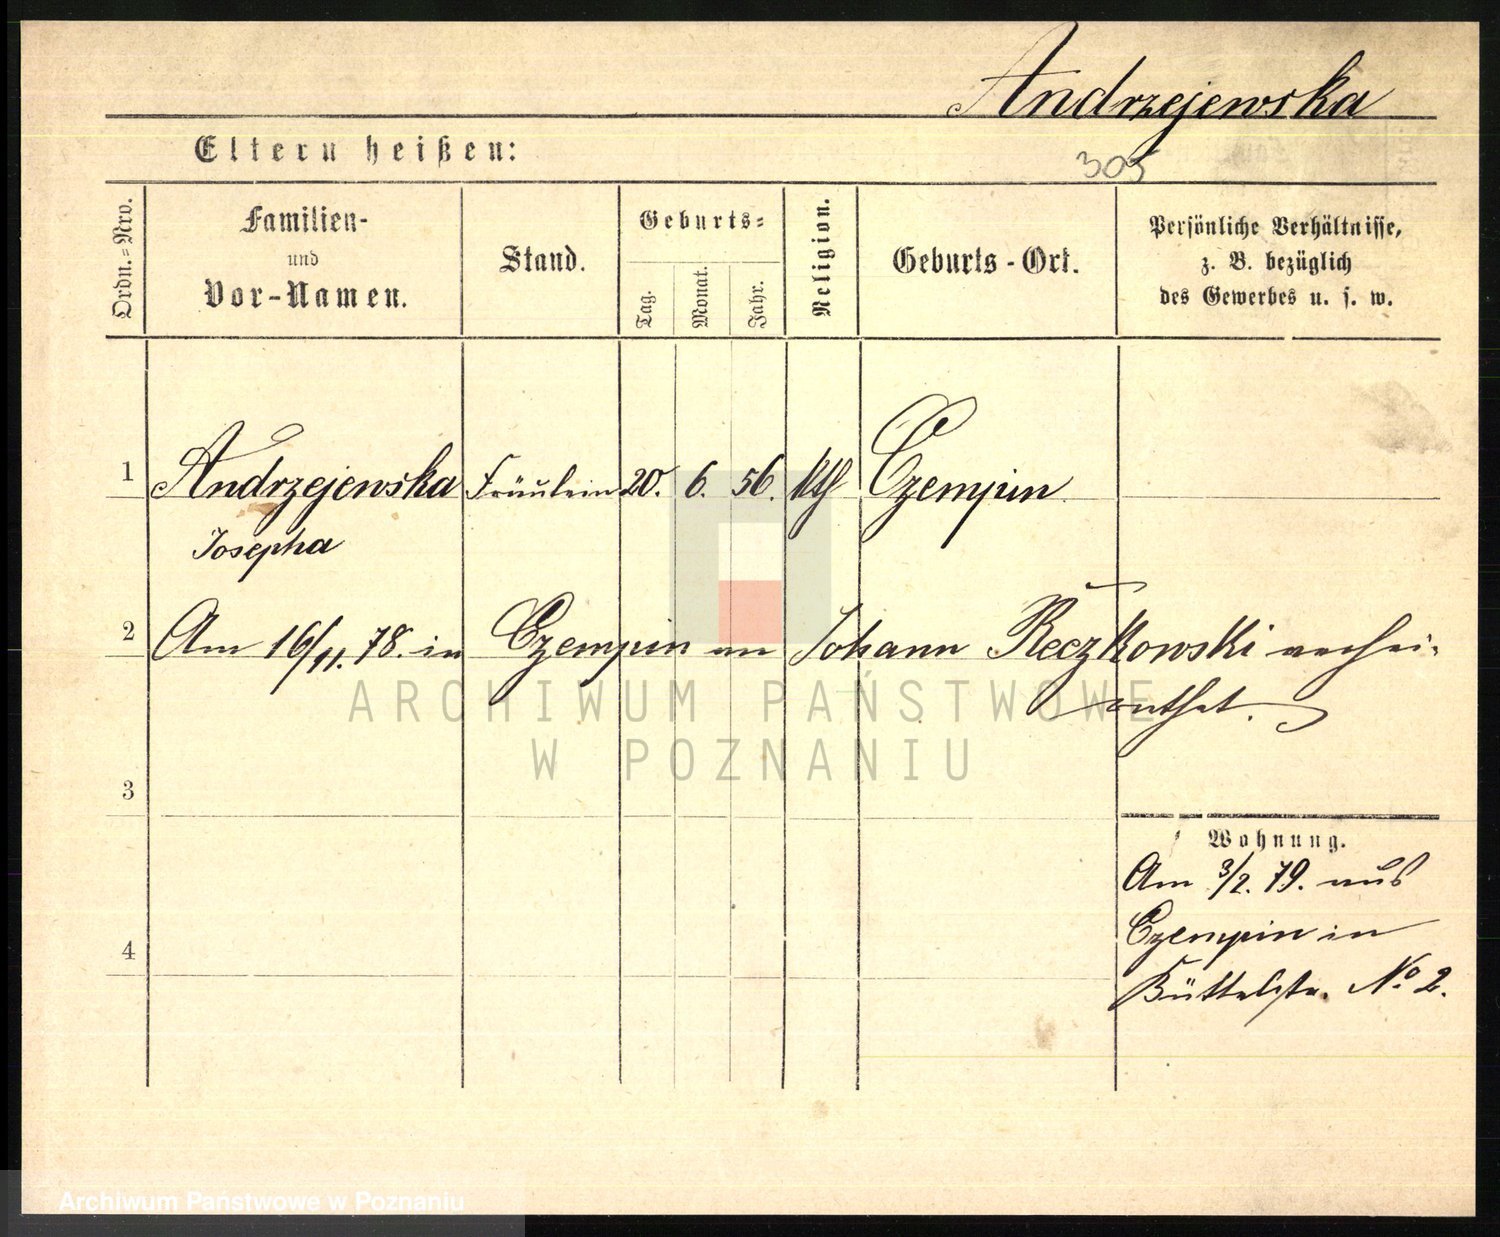 Andrzejewska
Eltern heißen:
305
Ordn.-Nro.
Familien-
und
Vor-Namen.
Stand.
Geburts-
Tag.
Monat.
Jahr.
Religion.
Geburts-Ort.
Persönliche Verhältnisse,
z. B. bezüglich
des Gewerbes u. s. w.
1 Andrzejewska Fräulein 20. 6. 56. kth Czempin
Josepha
2 Am 16/11. 78. in Czempin an Johann Reczkowski verhei-
rathet.
ARCHIWUM PAŃSTWOWE
W POZNANIU
3
Wohnung.
Am 3/2. 79. aus
Czempin in
4
Büttelstr. No 2.
Archiwum Państwowe w Poznaniu